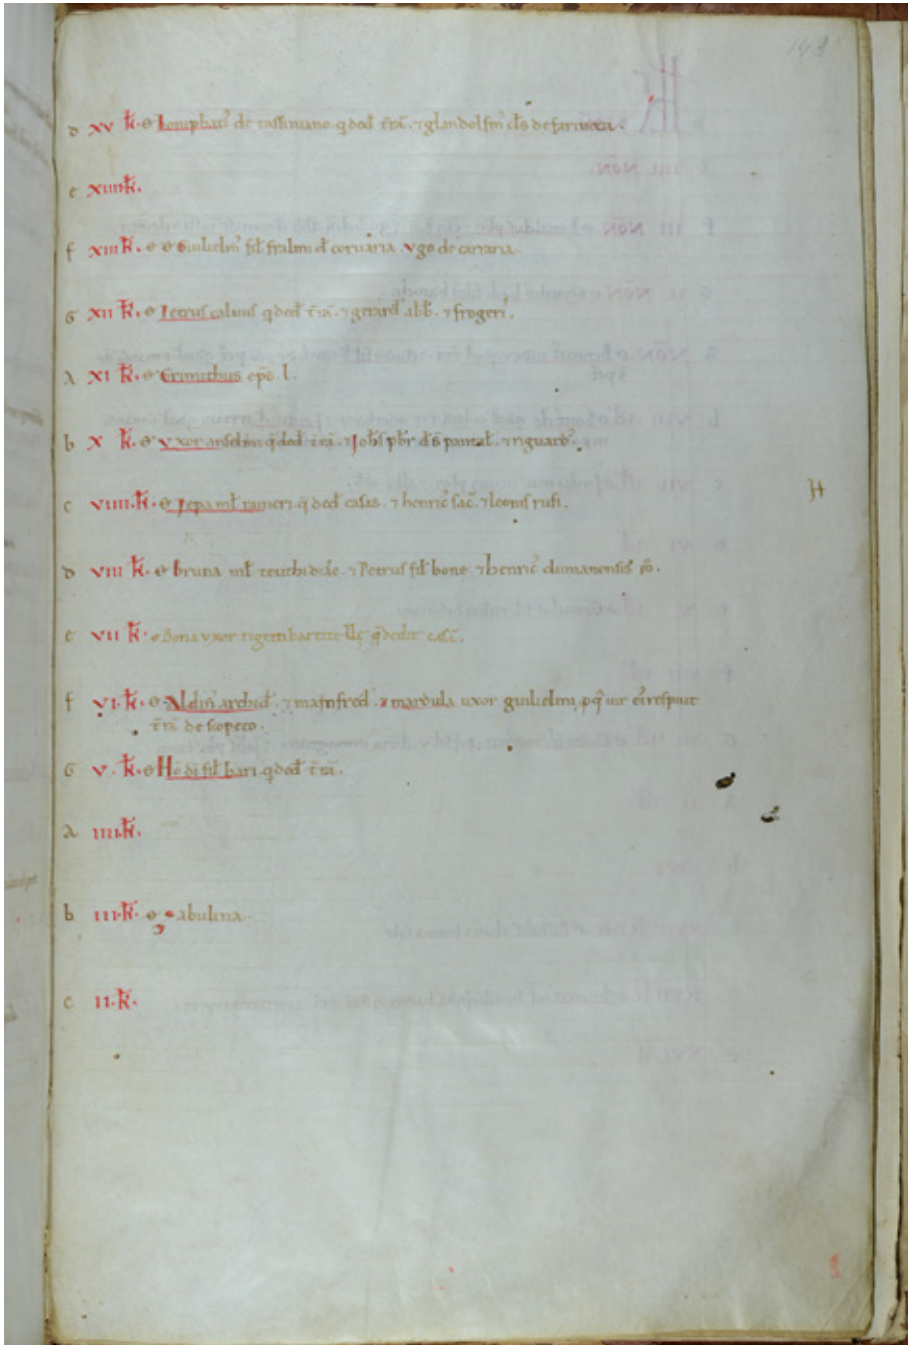 148
d XV k̄. o Lomphar᷒ de cassiniano. q ded t̄rā. ⁊ glandolfin᷒ de farnana.
e XIIII k̄.
f XIII k̄. o Guilielm᷒ fil fralmi d ceruaria. vgo de carraria.
G XII k̄. o Petrus caluus q ded t̄rā. ⁊ gerard᷒ abb. ⁊ frogeri.
A XI k̄. o Grimithus ep̄s. l.
b X k̄. o vxor anselmi q̄ ded t̄rā. ⁊ Joh̄s pbr ⁊ riguard᷒.
c VIIII. k̄. o Pepa ml̄ raineri q̄ ded casas. ⁊ henric᷒ sac̄. ⁊ leonis rufi.
d VIII k̄. o bruna ml̄ teuthi ⁊ Petrus fil bone ⁊ henric᷒ dumanensis
e VII k̄. o Bona vxor q̄ dedit
f VI. k̄. o Aldin᷒ archid. ⁊ mainfred. ⁊ mardula uxor guilielmi, p q̄ uir ei᷒ respuit
t̄rā de scopeto.
G V. k̄. o Ho di fil bari q ded t̄rā.
A IIII k̄.
b III. k̄. o sabulina.
c II. k̄.
H